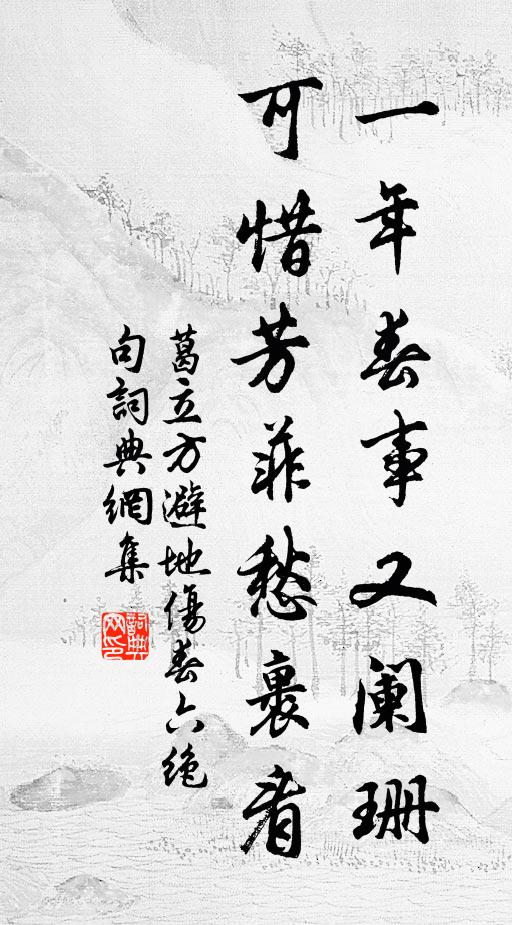 一年春事又阑珊
可惜芳菲愁裏看
葛立方避地傷春六絶
句詞典網集
詞典网印